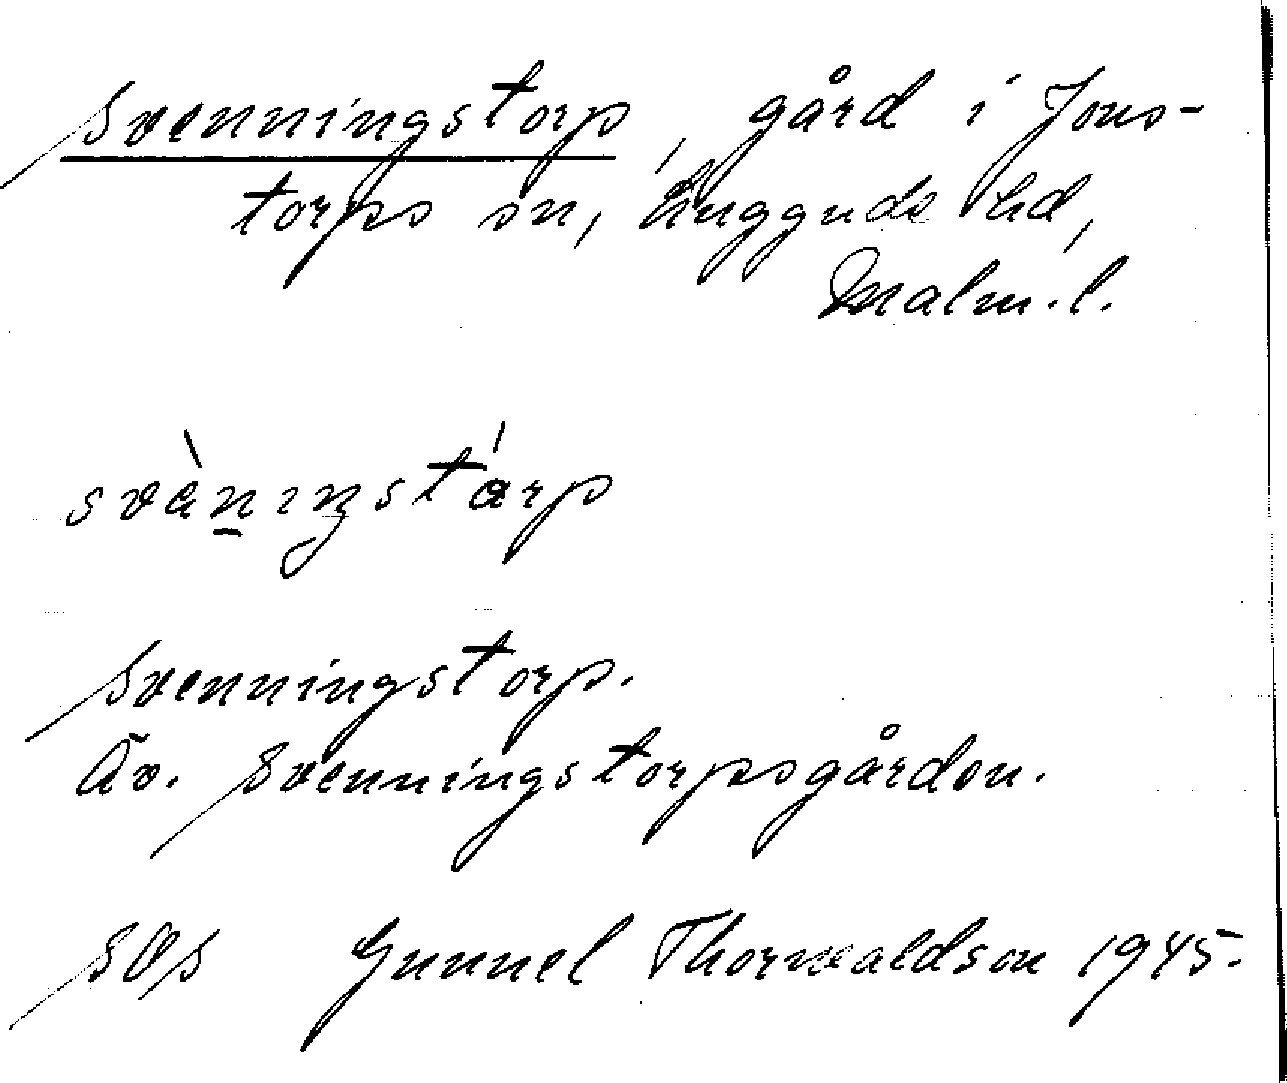 Svenningstorp, gård i Jons-
torps sn, Luggude hd,
Malm. l.
svànıŋstárp
Svenningstorp.
Äv. Svenningstorpsgården.
SOS Gunnel Thorwaldson 1945.